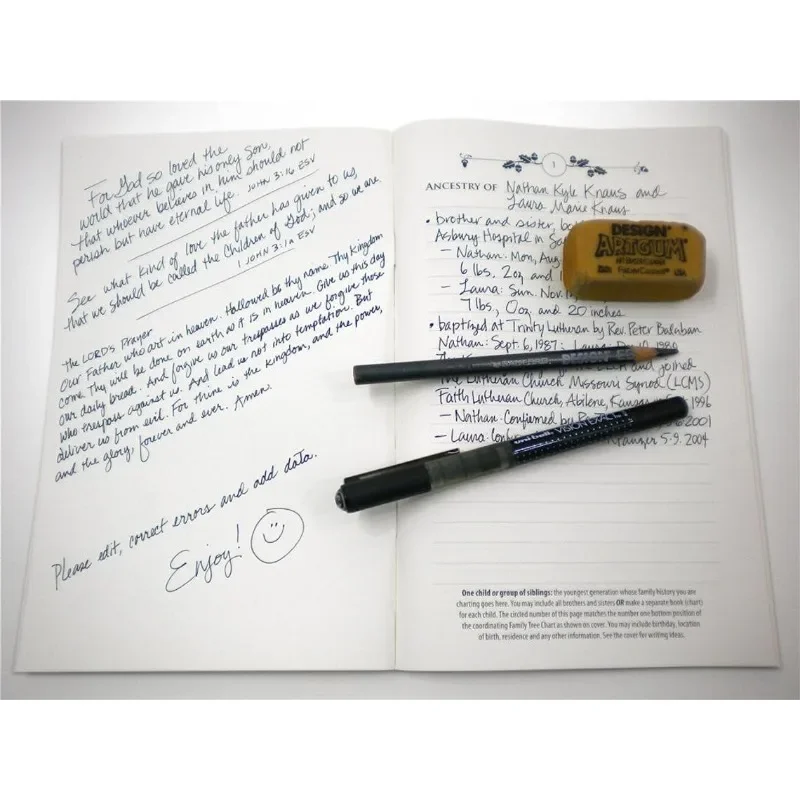 For God so loved the
world that he gave his only Son,
that whoever believes in him should not
perish but have eternal life. JOHN 3:16 ESV
See what kind of love the father has given to us,
that we should be called the Children of God; and so we are.
1 JOHN 3:1a ESV
the LORD's Prayer
Our Father who art in heaven. Hallowed be thy name. Thy Kingdom
come. Thy will be done on earth as it is in heaven. Give us this day
our daily bread. And forgive us our trespasses as we forgive those
who trespass against us. And lead us not into temptation. But
deliver us from evil. For thine is the Kingdom, and the power,
and the glory, forever and ever. Amen.
Please edit, correct errors and add data.
Enjoy!
1
ANCESTRY OF Nathan Kyle Knaus and
Laura Marie Knaus
• brother and sister,
Asbury Hospital in
– Nathan: Mon, Aug
6 lbs. 2oz and
– Laura: Sun. Nov.
7 lbs, 0oz, and 20 inches.
• baptized at Trinity Lutheran by Rev. Peter
Nathan: Sept. 6, 1987; Laura:
and joined
The Lutheran Church Missouri Synod (LCMS)
Faith Lutheran Church, Abilene, 1996
– Nathan: Confirmed by 2001
– Laura: 5-9-2004
DESIGN
ARTGUM
FaberCastell USA
DESIGN
uni-ball VISION EXACT
One child or group of siblings: the youngest generation whose family history you are
charting goes here. You may include all brothers and sisters OR make a separate book (chart)
for each child. The circled number of this page matches the number one bottom position of
the coordinating Family Tree Chart as shown on cover. You may include birthday, location
of birth, residence and any other information. See the cover for writing ideas.